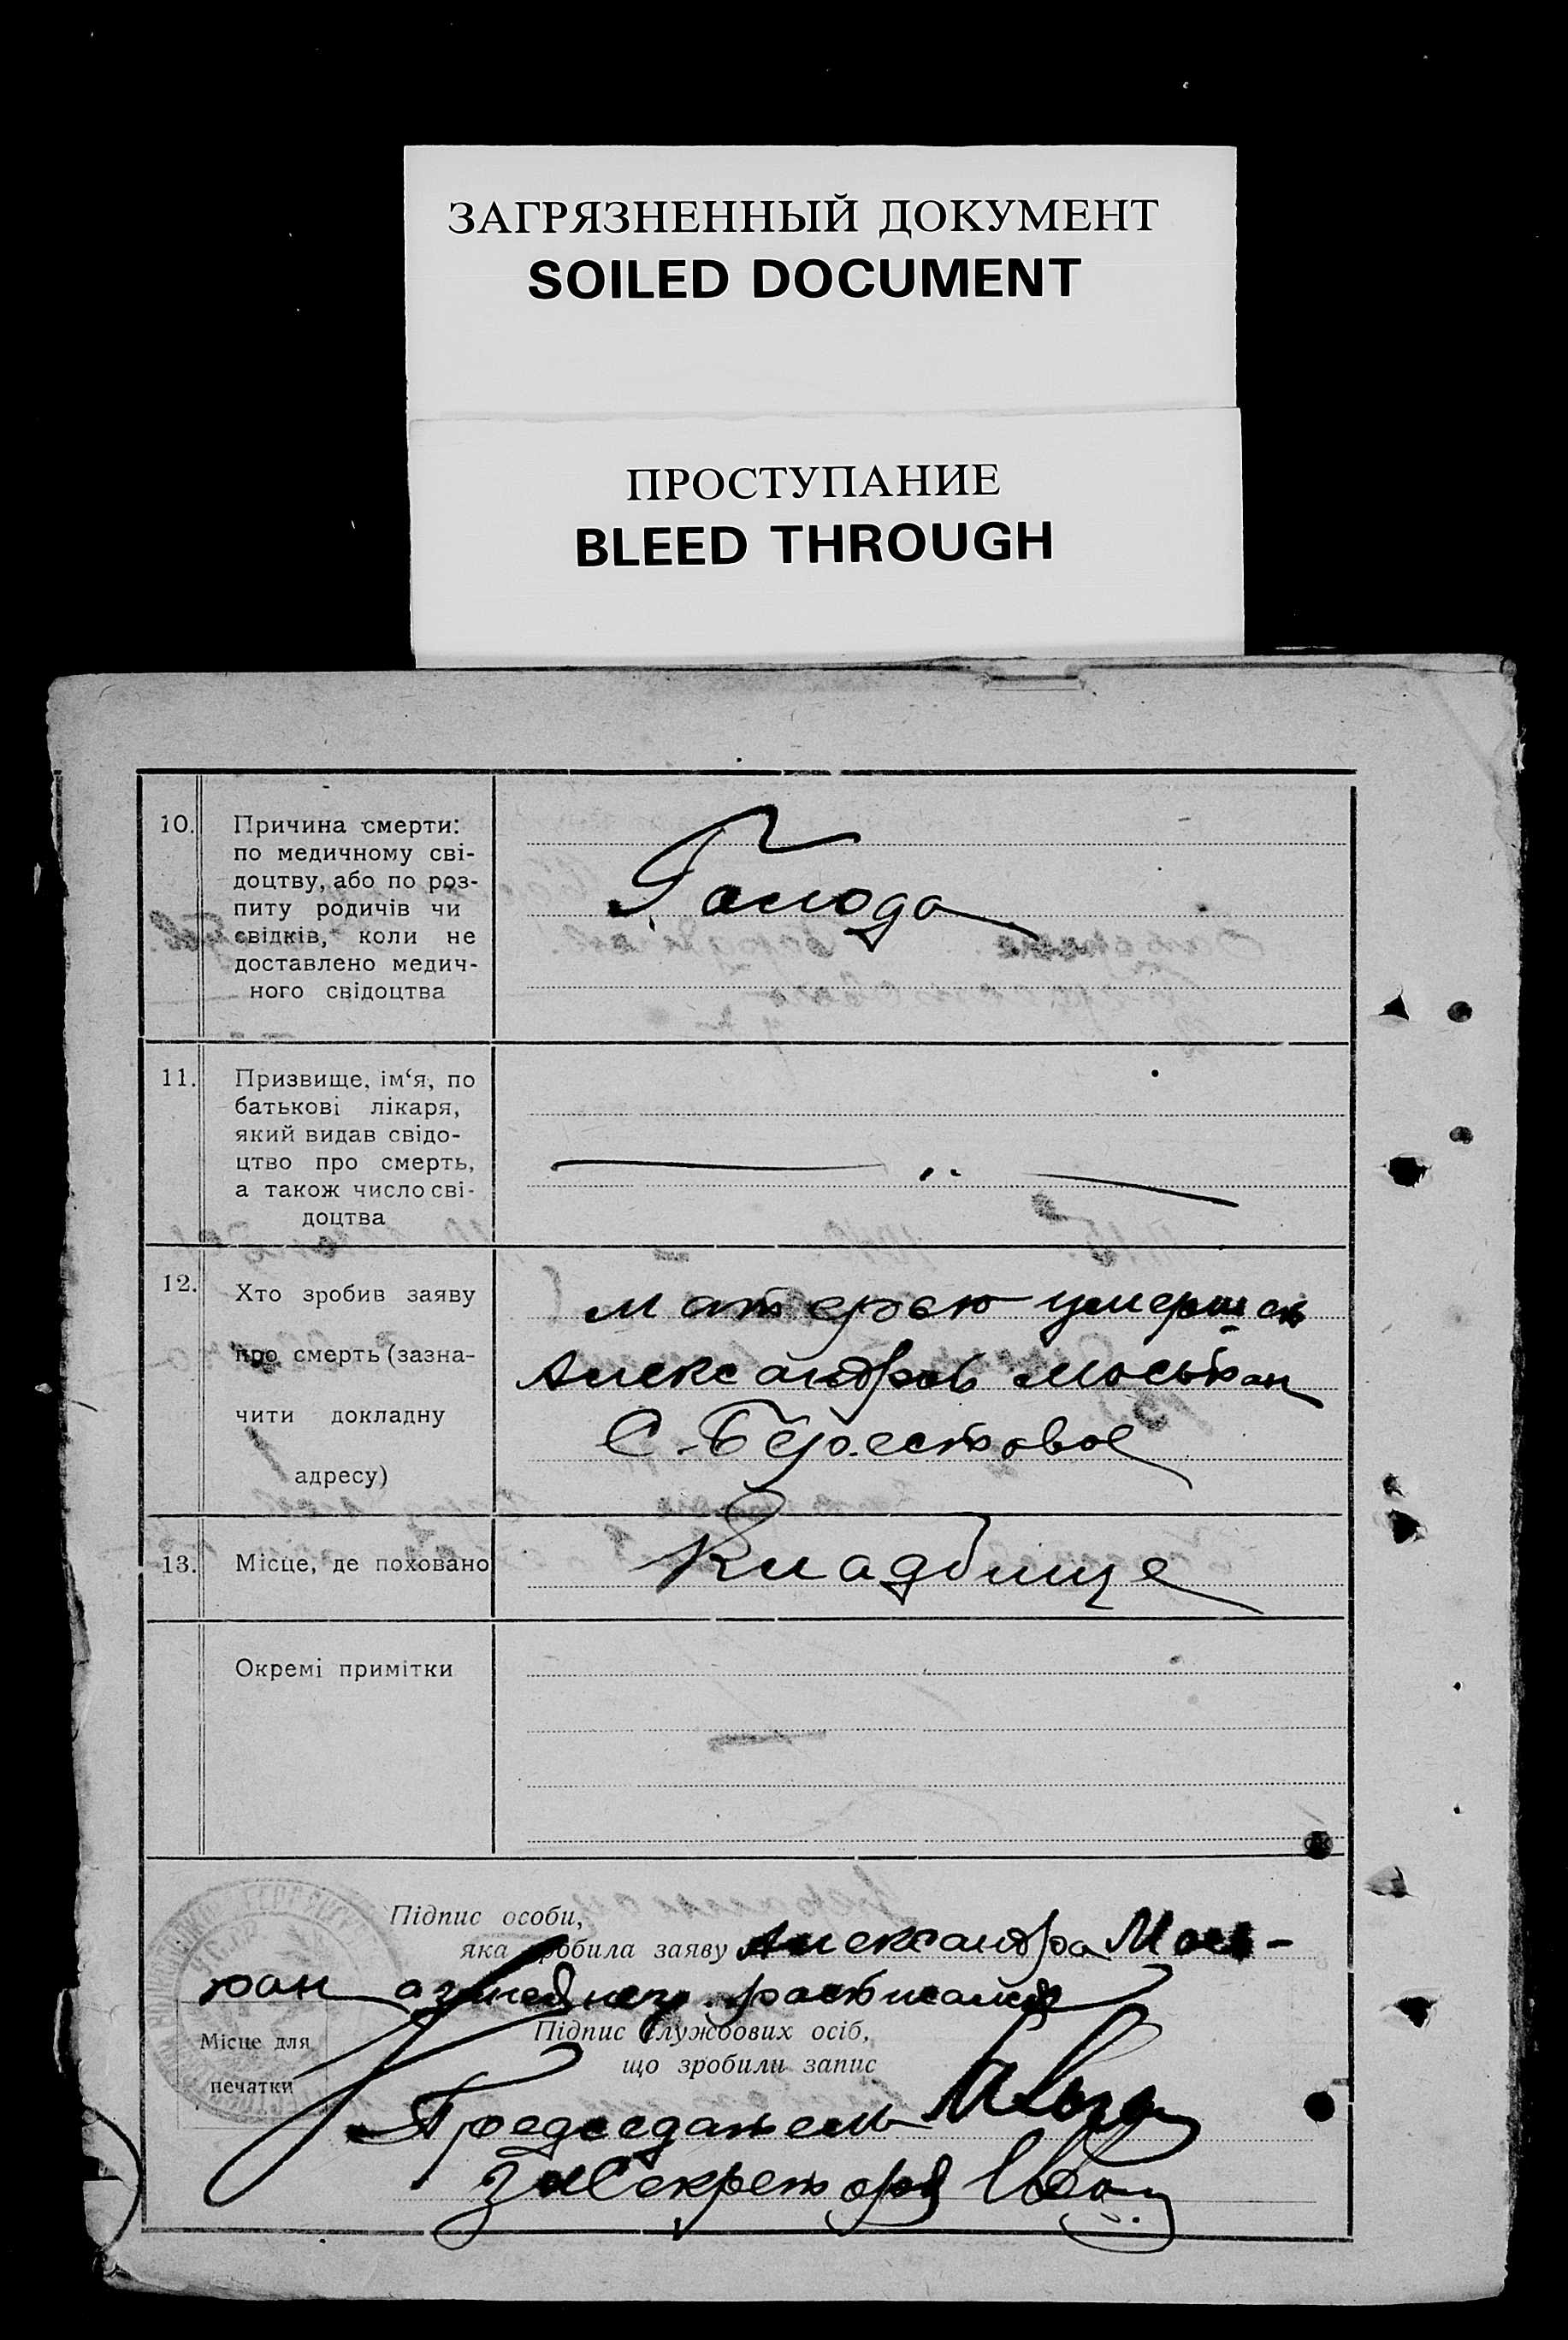 ЗАГРЯЗНЕННЫЙ ДОКУМЕНТ
SOILED DOCUMENT
ПРОСТУПАНИЕ
BLEED THROUGH
10.
Причина смерти:
по медичному сві-
доцтву, або по роз-
питу родичів чи
свідків, коли не
доставлено медич-
ного свідоцтва
Голода
11.
Призвище, ім‘я, по
батькові лікаря,
який видав свідо-
цтво про смерть,
а також число сві-
доцтва
12.
Хто зробив заяву
про смерть (зазна-
чити докладну
адресу)
матерью умершей
Александрой
С. Берестовое
13.
Місце, де поховано
Кладбище
Окремі примітки
Підпис особи,
яка зробила заяву Александра
Місце для
печатки
Підпис службових осіб,
що зробили запис
Председатель
за Секретаря